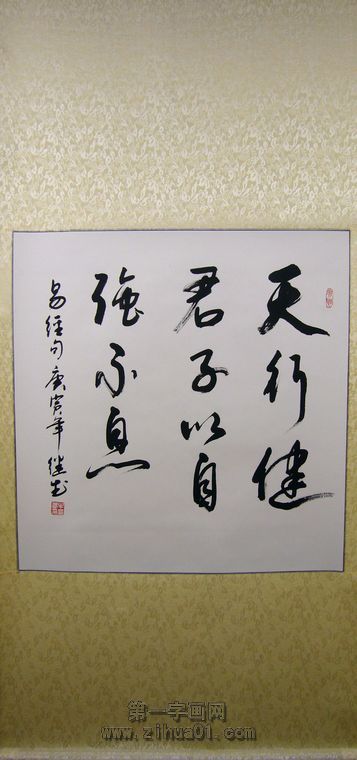 天行健
君子以自
强不息
易经句 庚寅年 继书
第一字画网
www.zihua01.com